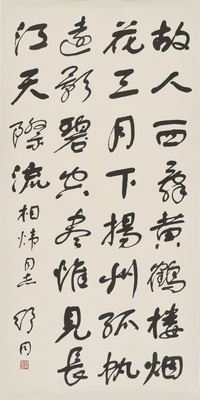 故人西辭黄鶴樓烟
花三月下揚州孤帆
遠影碧空盡惟見長
江天際流
煒同志 舒同